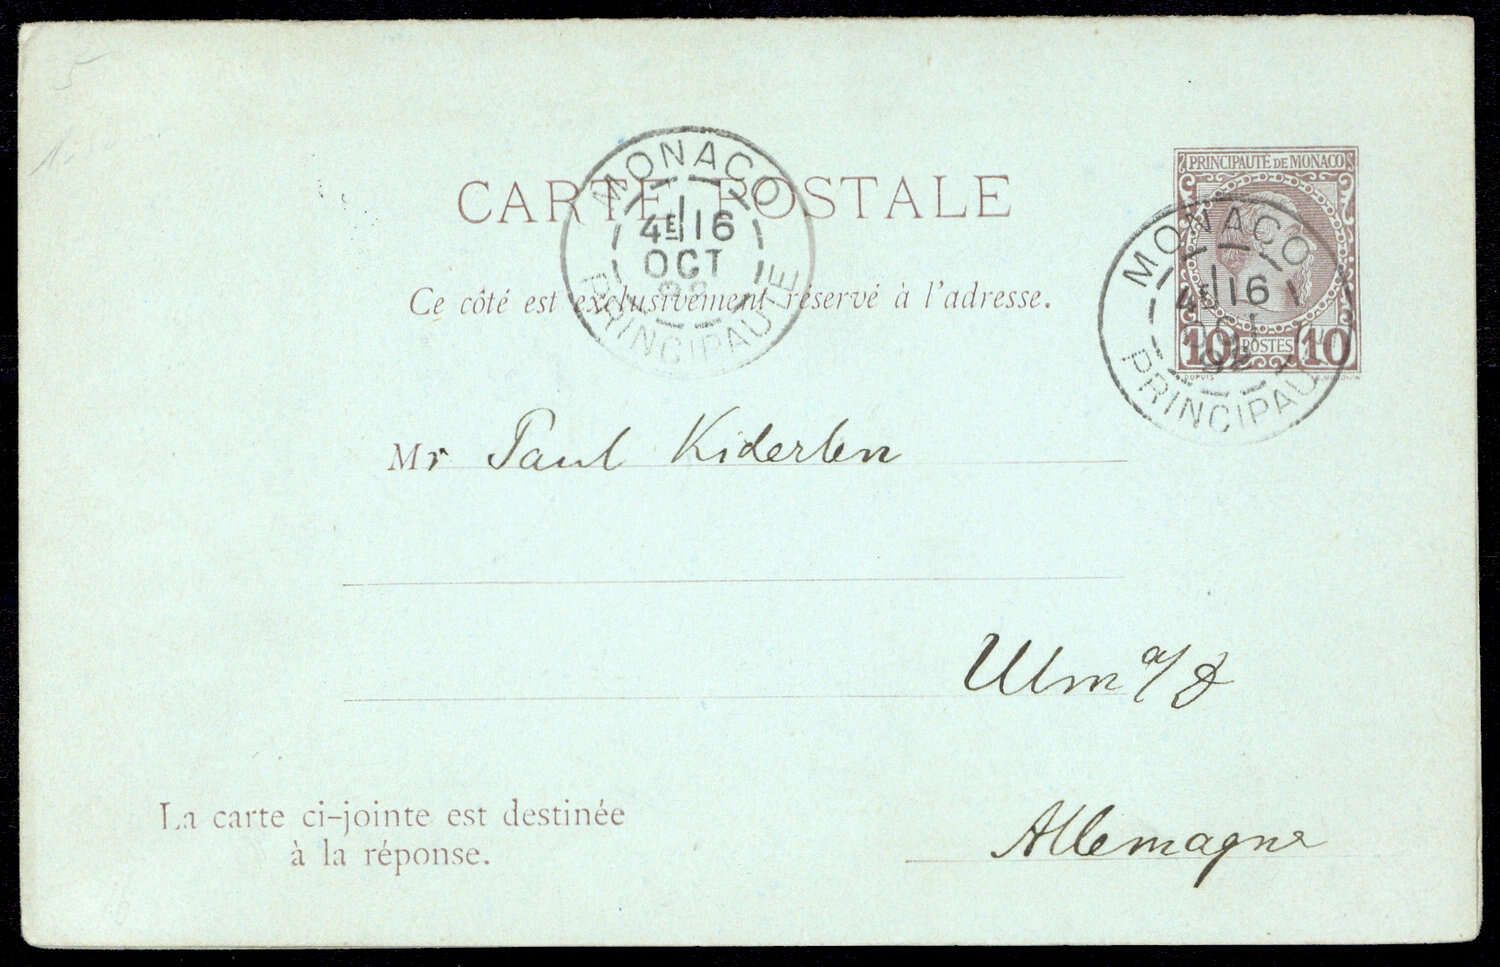 PRINCIPAUTÉ DE MONACO
CARTE POSTALE
MONACO
4E 16
OCT
92
PRINCIPAUTE
MONACO
4E 16
92
PRINCIPAU
10 POSTES 10
Ce côté est exclusivement réservé à l'adresse.
Mr Paul Kiderlen
Ulm a/D
Allemagne
La carte ci-jointe est destinée
à la réponse.